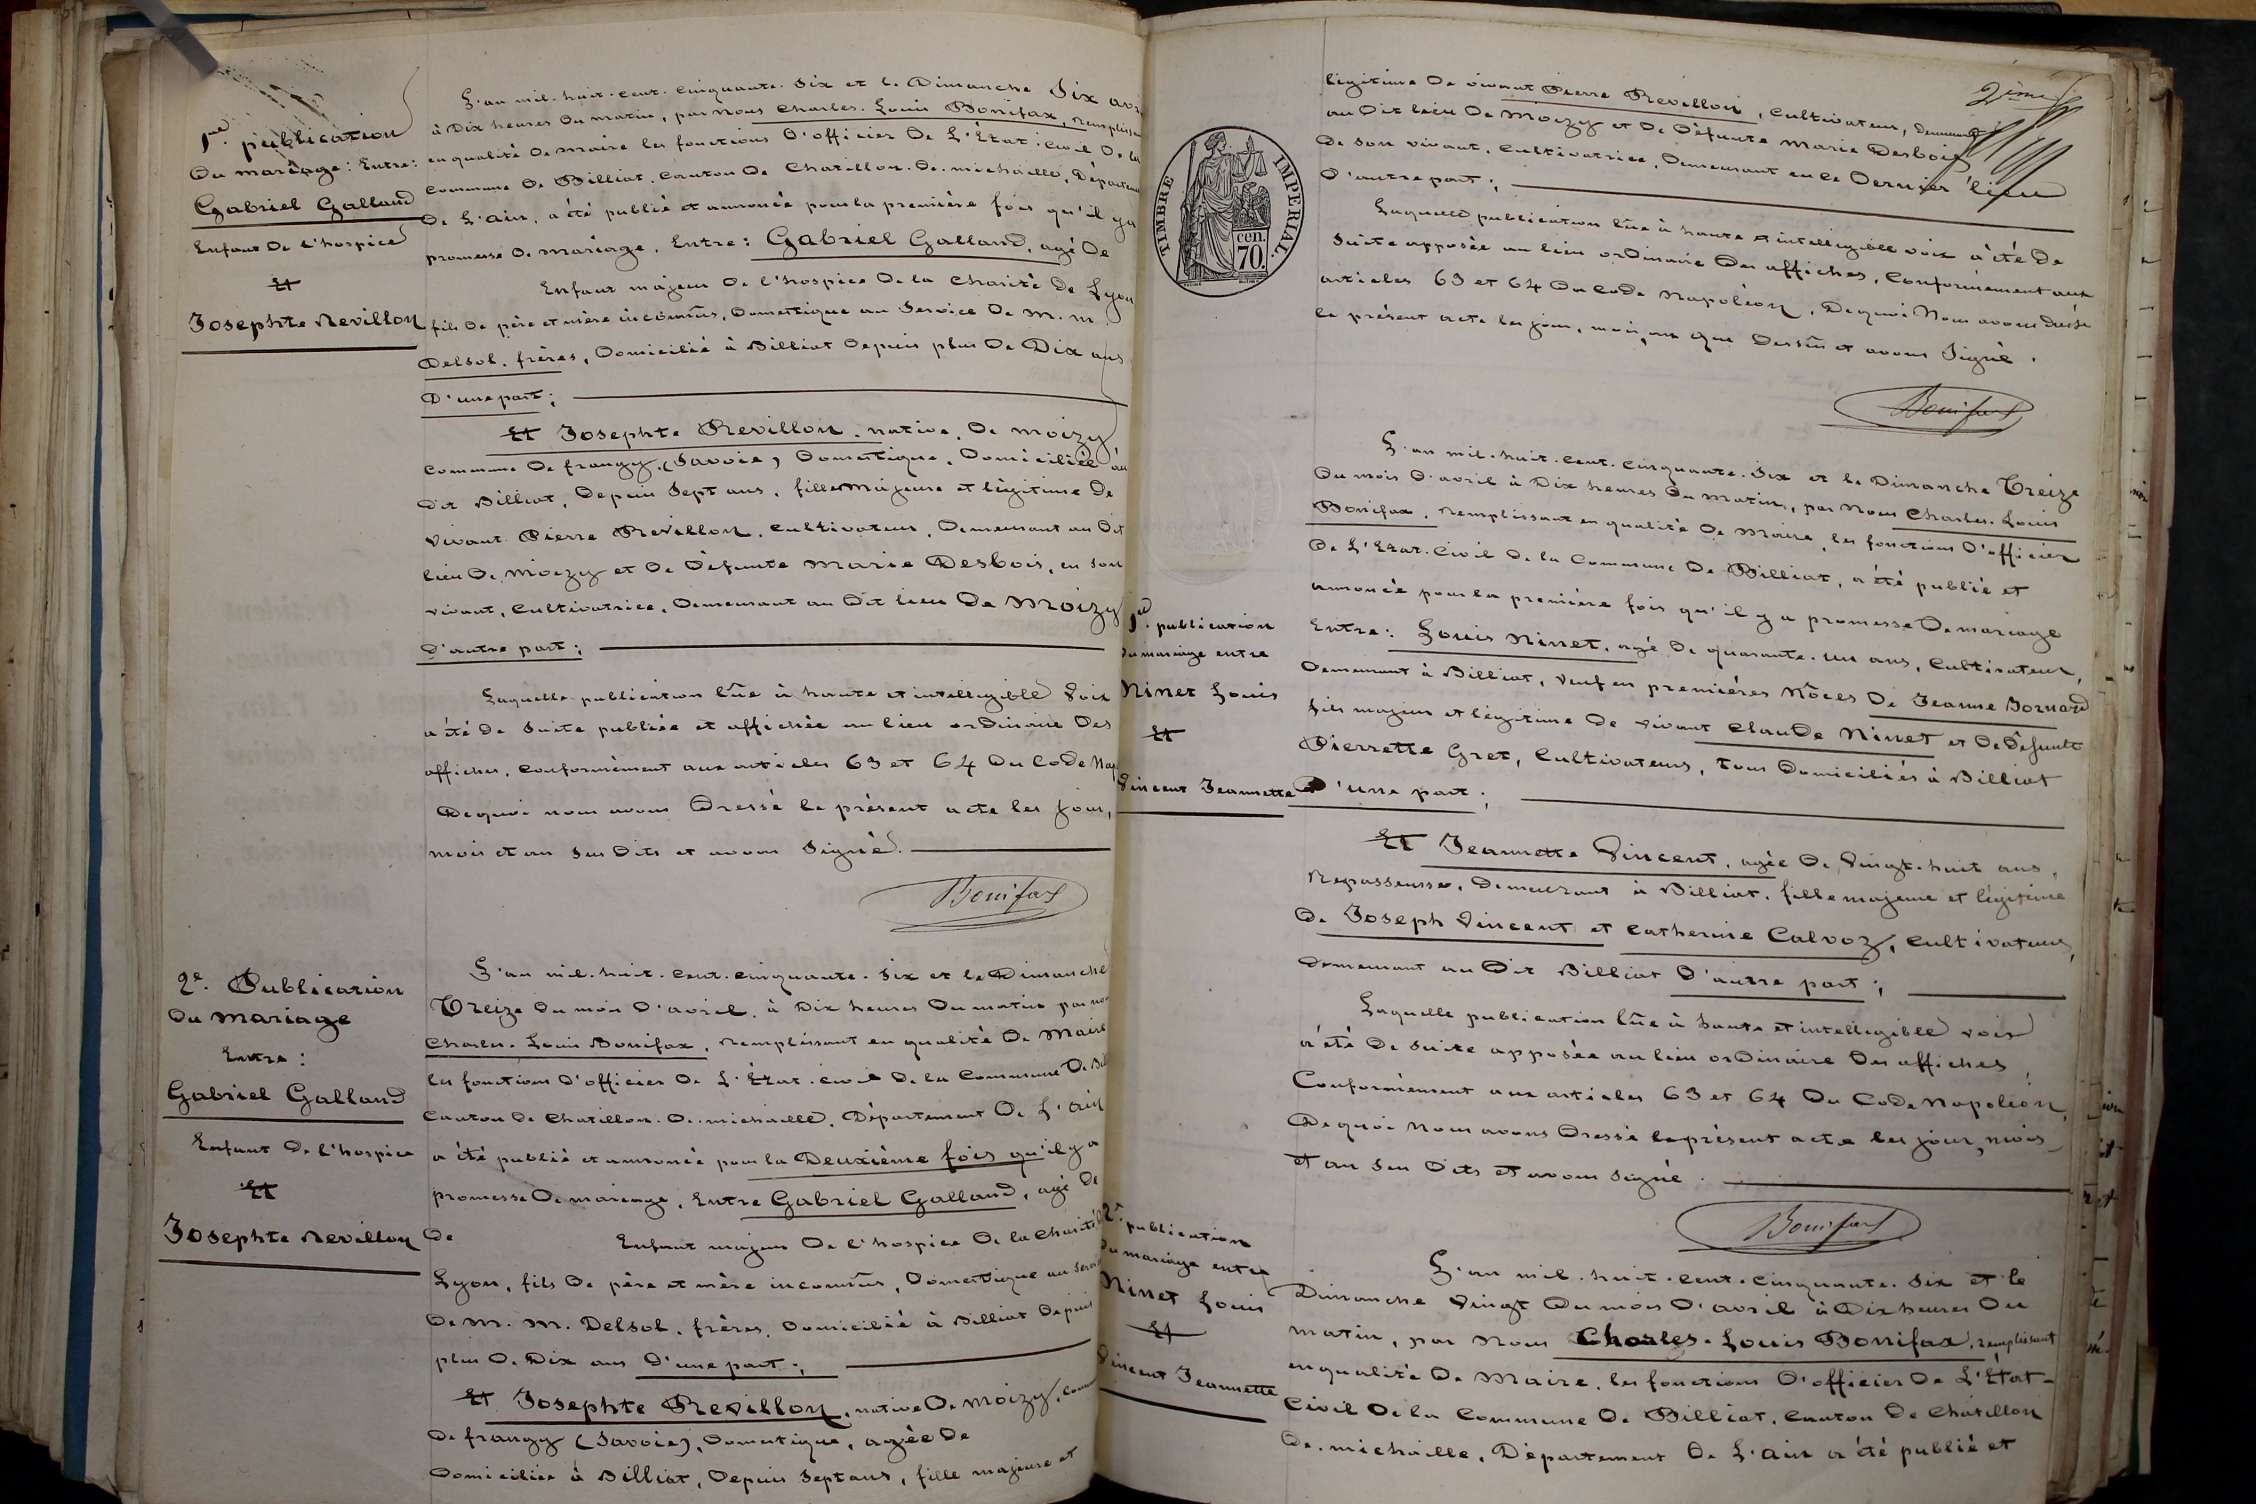 1re. publication
Du mariage : Entre :
Gabriel Galland
Enfant De l'hospice
Et
Josephte Revillon
L'an mil. huit. cent. cinquante. Six et le Dimanche Six avril
à Dix heures Du matin, par nous Charles. Louis Bonifax, remplissant
en qualité De maire les fonctions D'officier De L'Etat. civil De la
Commune De Billiat. canton De Chatillon. De. michaille, Département
De L'ain, a été publié et annoncé pour la première fois qu'il y a
promesse De mariage. Entre : Gabriel Galland, agé De
Enfant majeur De l'hospice De la Charité De Lyon
fils De père et mère inconnus, Domestique au Service De M. M.
Delsol. frères, Domicilié à Billiat Depuis plus De Dix ans
D'une part ;
Et Josephte Revillon. native. De moizy
Commune De frangy, (Savoie) Domestique. Domiciliée au
Dit Billiat, Depuis Sept ans, fille majeure et légitime De
vivant Pierre Revillon, cultivateur, Demeurant au Dit
lieu De moizy et De Défunte Marie Desbois, en son
vivant, Cultivatrice, Demeurant au Dit lieu De Moizy
D'autre part ;
Laquelle publication lûe à haute et intelligible Voix
a été De Suite publiée et affichée au lieu ordinaire Des
affiches, conformément aux articles 63 et 64 Du Code Nap
De quoi nous avons Dressé le présent acte les jour,
mois et an Sus Dits et avons Signé.
Bonifax
2e. Publication
Du mariage
Entre :
Gabriel Galland
Enfant De l'hospice
Et
Josephte Revillon
L'an mil. huit. cent. cinquante. Six et le Dimanche
Treize Du mois D'avril. à Dix heures Du matin par nous
Charles. Louis Bonifax, remplissant en qualité De Maire
les fonctions D'officier De L'Etat. civil De la Commune De Bill
Canton De Chatillon. De. michaille, Département De L'ain
a été publié et annoncée pour la Deuxième fois qu'il y a
promesse De mariage, Entre Gabriel Galland, agé De
De Enfant majeur De l'hospice De la Charité
Lyon, fils De père et mère inconnus, Domestique au Service
De M. M. Delsol. frères, Domicilié à Billiat Depuis
plus De Dix ans D'une part ;
Et Josephte Revillon, native De Moizy, Comm
De frangy (Savoie), Domestique, agée De
Domiciliée à Billiat, Depuis Sept ans, fille majeure et
2ème
légitime De vivant Pierre Revillon, Cultivateur, Demeurant
au Dit lieu De moizy et De Défunte Marie Desbois,
De son vivant, Cultivatrice, Demeurant en ce Dernier lieu
D'autre part ;
Laquelle publication lûe à haute et intelligible voix à été De
Suite apposée au lieu orDinaire Des affiches, Conformément aux
articles 63 et 64 Du Code Napoléon, De quoi Nous avons Dressé
le présent acte les jour, mois, an que Dessûs et avons Signé.
Bonifax
TIMBRE IMPERIAL.
cen.
70.
1re. publication
Du mariage entre
Ninet Louis
Et
Vincent Jeannette
L'an mil. huit. cent. cinquante. Six et le Dimanche Treize
Du mois D'avril à Dix heures Du matin, par Nous Charles. Louis
Bonifax, remplissant en qualité De Maire, les fonctions D'officier
De L'Etat. Civil De la Commune De Billiat, a été publié et
annoncée pour la première fois qu'il y a promesse De mariage
Entre : Louis Ninet, agé De quarante. un ans, Cultivateur,
Demeurant à Billiat, veuf en premières Nôces De Jeanne Bornard
fils majeur et légitime De vivant Claude Ninet et De Défunte
Pierrette Gret, Cultivateurs, tous Domiciliés à Billiat
D'une part ;
Et Jeannette Vincent, agée De Vingt. huit ans,
Repasseuse, Demeurant à Billiat. fille majeure et légitime
De Joseph Vincent et Catherine Calvoz, Cultivateurs,
Demeurant au Dit Billiat D'autre part ;
Laquelle publication lûe à haute et intelligible voix
a été De Suite apposée au lieu orDinaire Des affiches,
Conformément aux articles 63 et 64 Du Code Napoléon,
De quoi Nous avons Dressé le présent acte les jour, mois
et an Sus Dits et avons signé.
Bonifax
2e. publication
Du mariage entre
Ninet Louis
Et
Vincent Jeannette
L'an mil. huit. cent. cinquante. Six et le
Dimanche Vingt Du mois D'avril à Dix heures Du
matin, par Nous Charles. Louis Bonifax, remplissant
en qualité De Maire. les fonctions D'officier De L'Etat-
Civil De la Commune De Billiat, Canton De Chatillon
De. michaille, Département De L'ain a été publié et